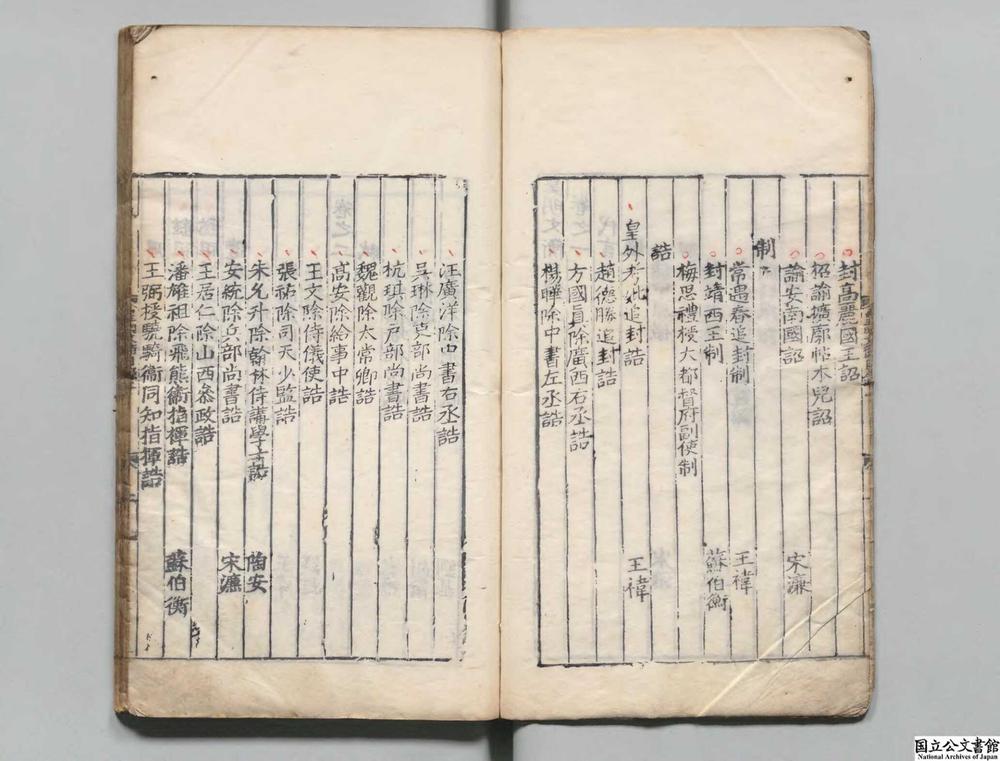 封高麗國王詔
招諭擴廓帖木兒詔
諭安南國詔 宋濂
制
常遇春追封制 王禕
封靖西王制 蘇伯衡
梅思禮授大都督府副使制
誥
皇外考妣追封誥 王禕
趙德勝追封誥
方國真除廣西右丞誥
楊曄除中書左丞誥
汪廣洋除中書右丞誥
吳琳除吏部尚書誥
杭琪除户部尚書誥
魏觀除太常卿誥
高安除給事中誥
王文除侍儀使誥
張祐除同天少監誥
朱允升除翰林侍講學士誥 陶安
安統除兵部尚書誥 宋濂
王居仁除山西叅政誥
潘雄祖除飛熊衛指揮誥 蘇伯衡
王弼授驍騎衛同知指揮誥
国立公文書館
National Archives of Japan